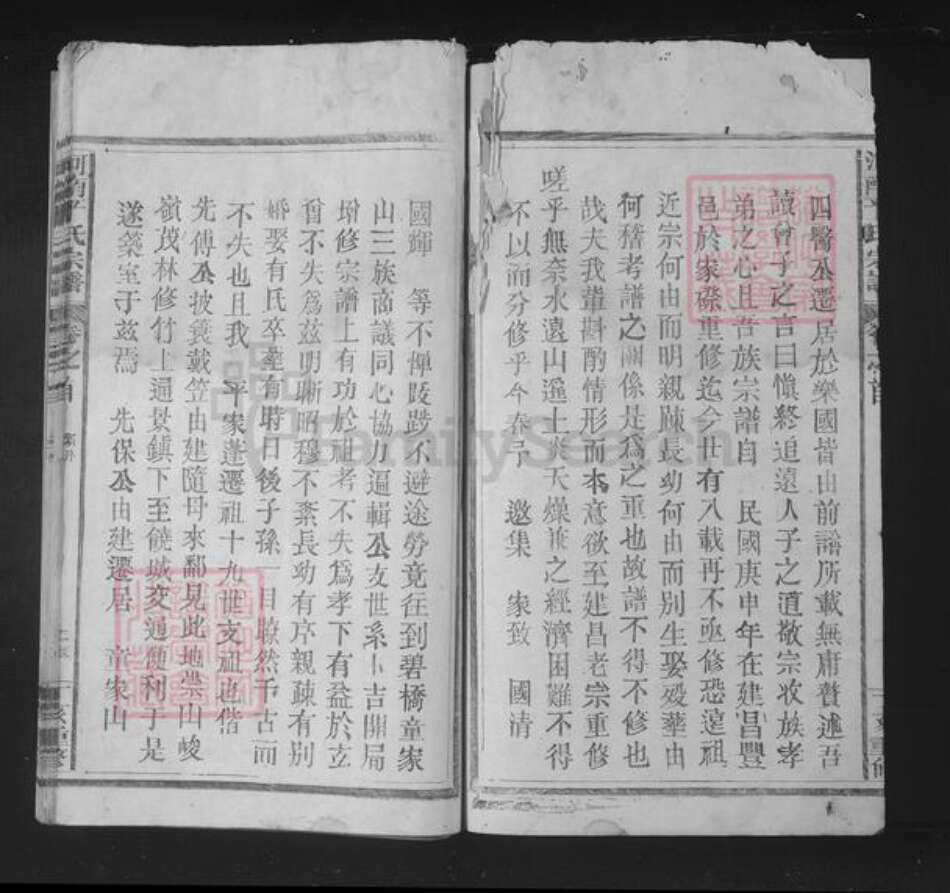 四醫公遷居於樂國皆由前譜所載無庸贅述吾
讀曾子之言曰愼終追遠人子之道敬宗收族孝
弟之心且吾族宗譜自 民國庚申年在建昌豐
邑於家磜重修迄今廿有八載再不亟修恐遠祖
近宗何由而明親疎長幼何由而别生娶歿塟由
何稽考譜之關係是爲之重也故譜不得不修也
哉夫我輩斟酌情形而本意欲至建昌老宗重修
嗟乎無奈水遠山遙土炎天燥兼之經濟困難不得
不以而分修乎今春予 邀集 家致 國清
國輝 等不憚跋踄不避途勞竟往到碧橋童家
山三族商議同心協力逼輯公支世系卜吉開局
增修宗譜上有功於祖考不失爲孝下有益於玄
曾不失爲茲明晰昭穆不紊長幼有序親疎有别
婚娶有氏卒塟有時日後子孫一目瞭然千古而
不失也且我 平家蓬遷祖十九世支祖也偕
先傅公披蓑戴笠由建隨母來鄱見此地崇山峻
嶺茂林修竹上通景鎮下至饒城交通便利于是
遂築室于茲焉 先保公由建遷居 童家山
河南平氏宗譜
FamilySearch